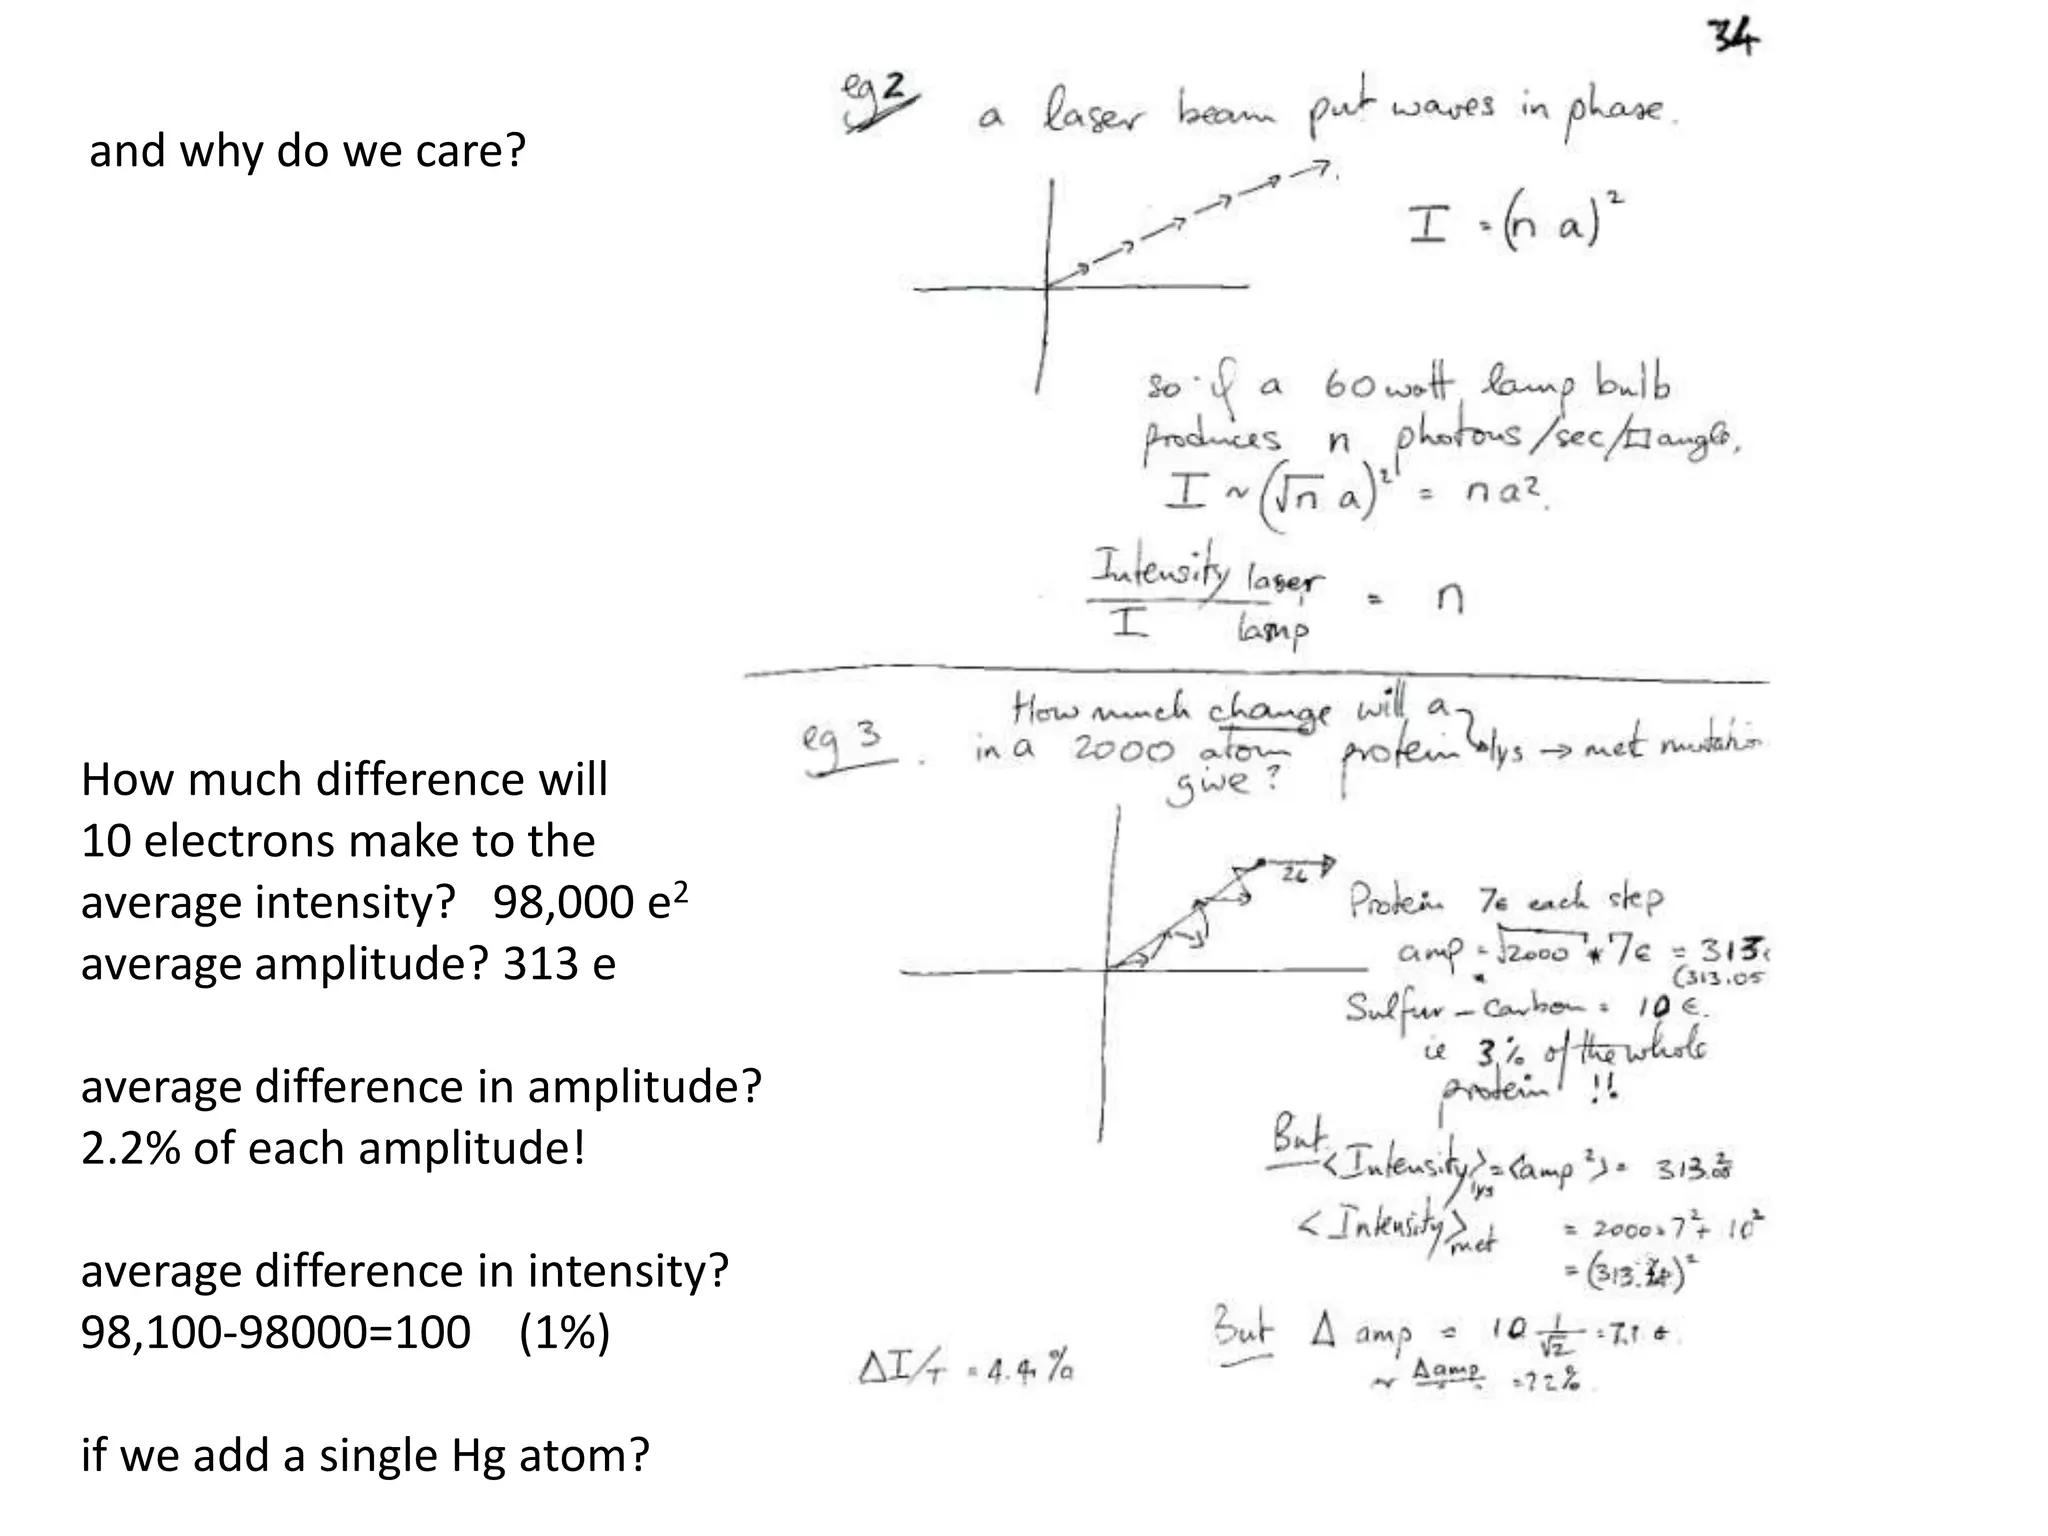 34
and why do we care?
eg2 a laser beam put waves in phase.
I = (n a)²
so if a 60 watt lamp bulb
produces n photons/sec/□ angle.
I ~ (√n a)² = na².
Intensity laser
I lamp
= n
eg 3. How much change will a
in a 2000 atom protein lys → met mutation
give?
26
Protein 7e each step
amp = √2000 * 7e = 313
(313.05
Sulfur - Carbon = 10 e.
ie 3% of the whole
protein !!
But <Intensity>lys = <amp²> = 313.05²
<Intensity>met = 2000.7² + 10²
= (313.)²
But Δ amp = 10 1/√2 = 7.1 e.
~ Δamp = 2.2%
ΔI/I = 4.4%
How much difference will
10 electrons make to the
average intensity? 98,000 e²
average amplitude? 313 e
average difference in amplitude?
2.2% of each amplitude!
average difference in intensity?
98,100-98000=100 (1%)
if we add a single Hg atom?